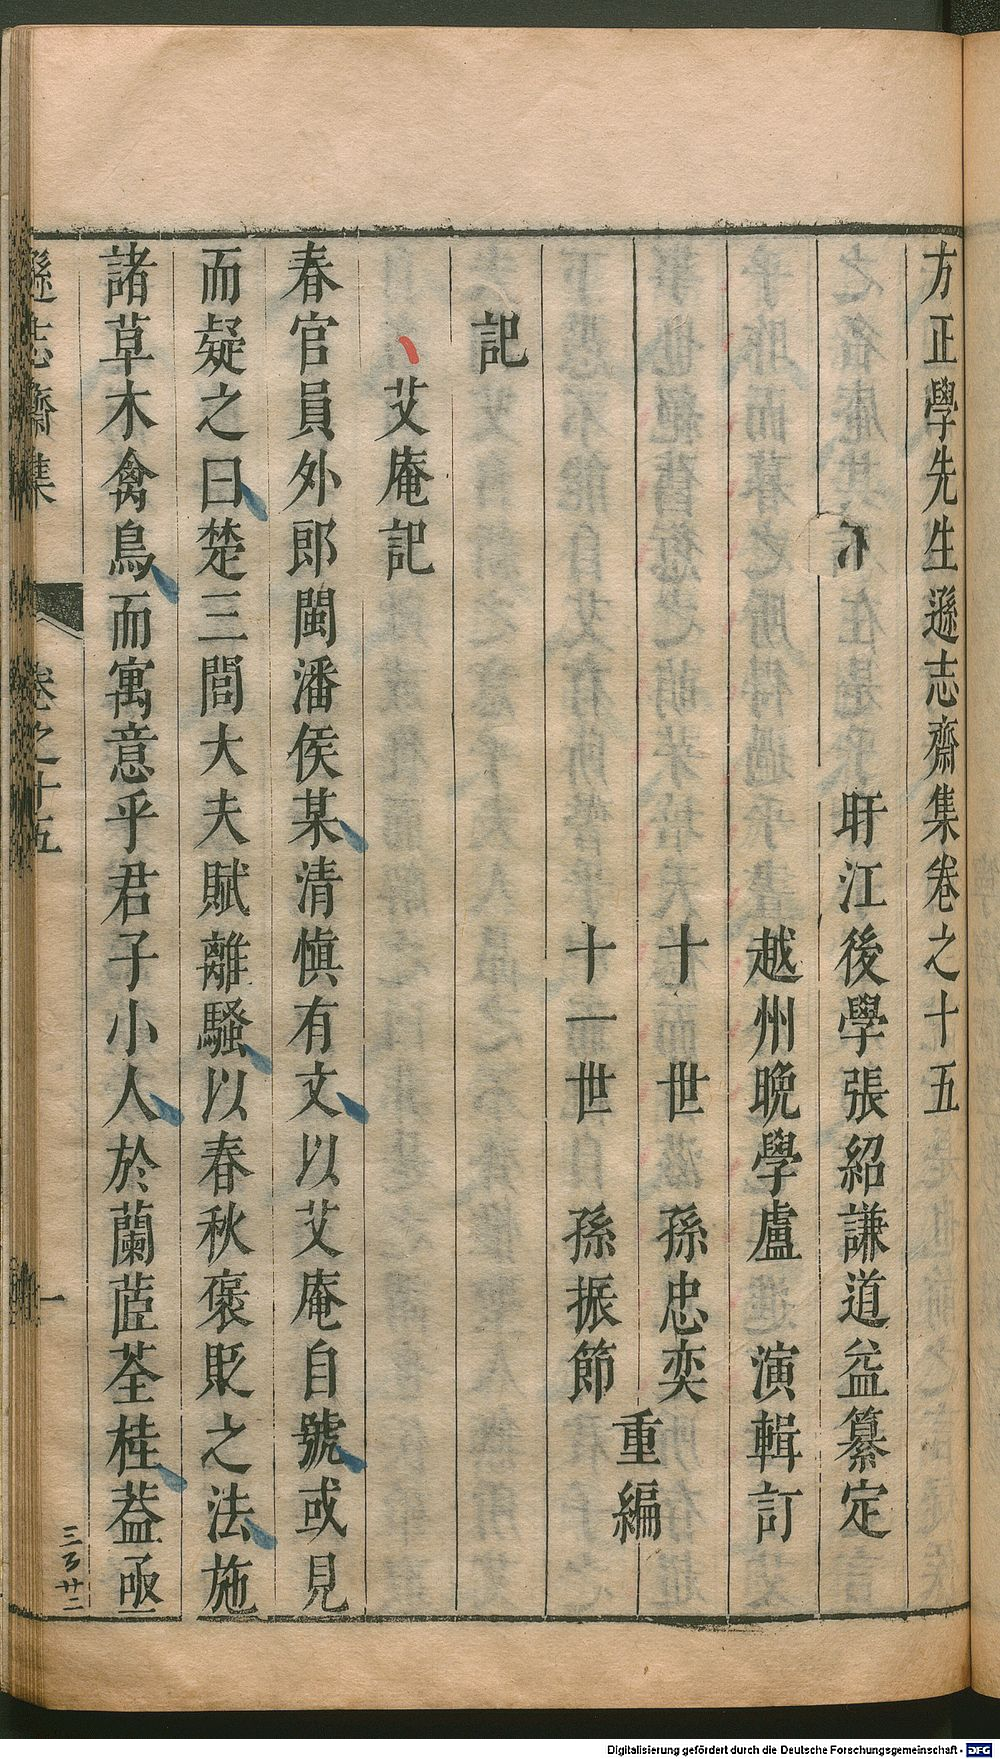 方正學先生遜志齋集卷之十五
盱江後學張紹謙道益纂定
越州晚學盧演輯訂
十世孫忠奕
十一世孫振節
重編
記
艾庵記
春官員外郎閩潘侯某清慎有文以艾庵自號或見
而疑之曰楚三閭大夫賦離騷以春秋褒貶之法施
諸草木禽鳥而寓意乎君子小人於蘭茝荃桂葢亟
遜志齋集
卷之十五
一
Digitalisierung gefördert durch die Deutsche Forschungsgemeinschaft - DFG